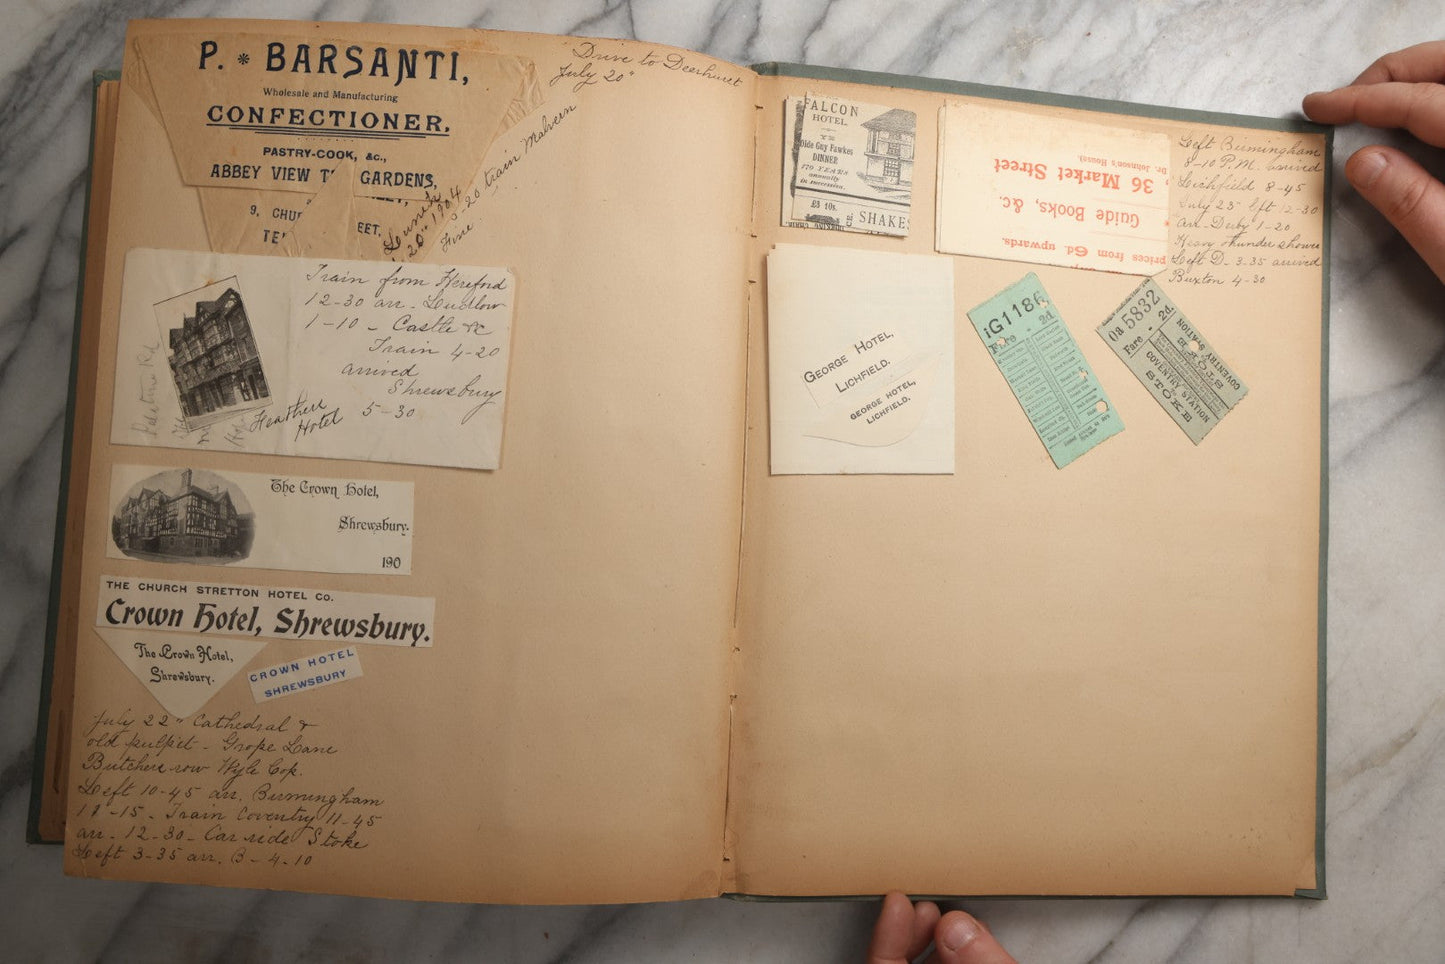 P. * BARSANTI,
Wholesale and Manufacturing
CONFECTIONER,
PASTRY-COOK, &c.,
ABBEY VIEW GARDENS,
9,
EET,
Drive to Deerhurst
July 20"
Lunch
20" 1904
5-20 train Malvern
Fine
Train from Hereford
12-30 arr - Ludlow
1-10 - Castle &c
Train 4-20
arrived
Shrewsbury
5-30
Hotel
The Crown Hotel,
Shrewsbury.
190
THE CHURCH STRETTON HOTEL CO.
Crown Hotel, Shrewsbury.
The Crown Hotel,
Shrewsbury.
CROWN HOTEL
SHREWSBURY
July 22" Cathedral &
old pulpit - Grope Lane
Butcher row Wyle Cop.
Left 10-45 arr. Birmingham
- 15 - Train Coventry 11-45
arr - 12-30 - Car ride Stoke
Left 3-35 arr. B - 4-10
FALCON
HOTEL
YE
Olde Guy Fawkes
DINNER
170 YEARS
annually
in succession.
£3 10s.
SHAKES
36 Market Street
Dr. Johnson's House).
Guide Books, &c.
prices from 6d. upwards.
Left Birmingham
8-10 P.M. arrived
Lichfield 8-45
July 23" left 12-30
arr. Derby 1-20
Heavy thunder shower
Left D - 3-35 arrived
Buxton 4-30
GEORGE HOTEL,
LICHFIELD.
GEORGE HOTEL,
LICHFIELD.
iG1186
Fare 2d.
Oa 5832
Fare 2d.
COVENTRY STATION
STOKE
COVENTRY STATION
STOKE